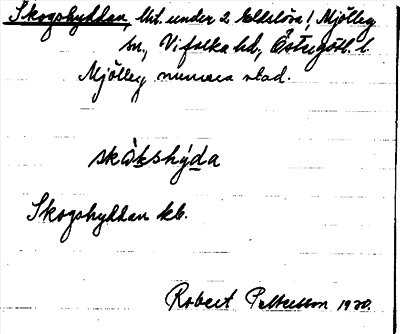 Skogshyddan, lht. under 2 Eldslösa, Mjölby
sn, Vifolka hd, Östergötl. l.
Mjölby numera stad.
skòkshýda
Skogshyddan kb.
Robert Pettersson 1930.